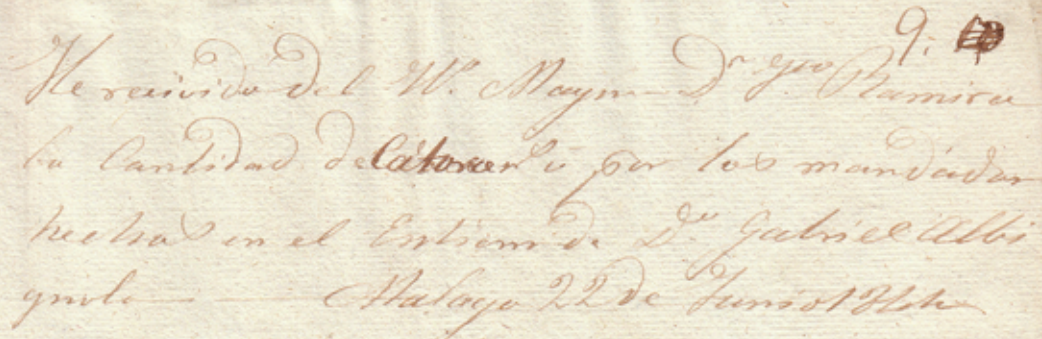 9.
He recivido del Sr. Mayor Dn Ramirez
la Cantidad de Catorce por los mandados
hechos en el Entierro de Dn. Gabriel Albi
gnolo Malaga 22 de Junio